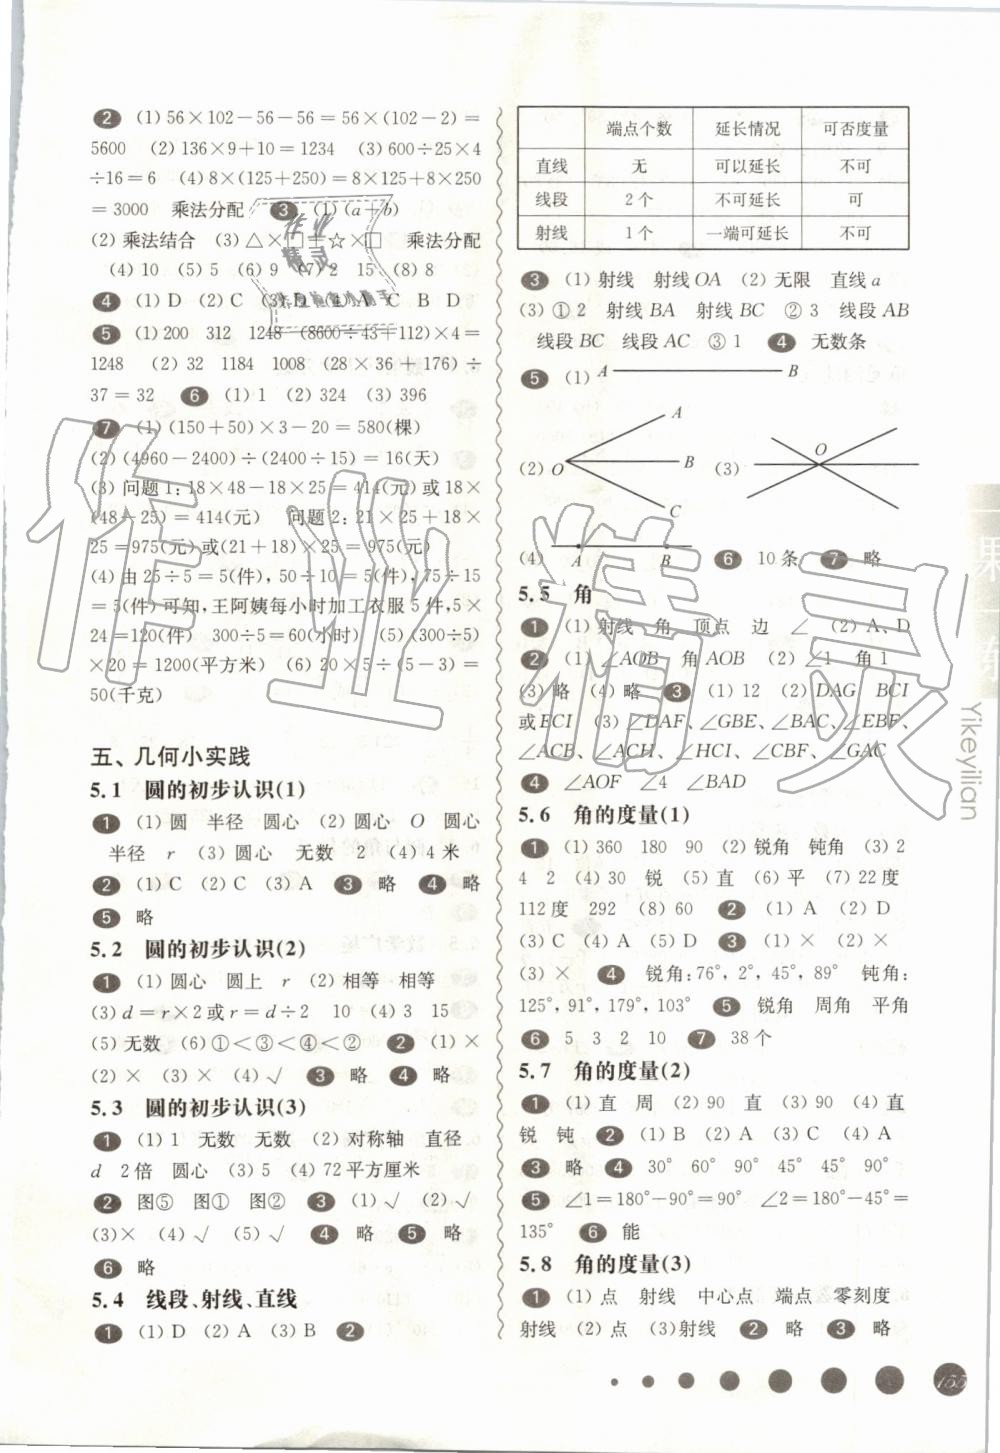 2 (1) 56×102－56－56＝56×(102－2)＝
5600 (2) 136×9＋10＝1234 (3) 600÷25×4
÷16＝6 (4) 8×(125＋250)＝8×125＋8×250
＝3000 乘法分配 3 (1) (a＋b)
(2) 乘法结合 (3) △×□＋☆×□ 乘法分配
(4) 10 (5) 5 (6) 9 (7) 2 15 (8) 8
4 (1) D (2) C (3) D (4) A C B D
5 (1) 200 312 1248 (8600÷43＋112)×4＝
1248 (2) 32 1184 1008 (28×36＋176)÷
37＝32 6 (1) 1 (2) 324 (3) 396
7 (1) (150＋50)×3－20＝580(棵)
(2) (4960－2400)÷(2400÷15)＝16(天)
(3) 问题1：18×48－18×25＝414(元)或18×
(48－25)＝414(元) 问题2：21×25＋18×
25＝975(元)或(21＋18)×25＝975(元)
(4) 由25÷5＝5(件)，50÷10＝5(件)，75÷15
＝5(件)可知，王阿姨每小时加工衣服5件，5×
24＝120(件) 300÷5＝60(小时) (5) (300÷5)
×20＝1200(平方米) (6) 20×5÷(5－3)＝
50(千克)
五、几何小实践
5.1 圆的初步认识(1)
1 (1) 圆 半径 圆心 (2) 圆心 O 圆心
半径 r (3) 圆心 无数 2 (4) 4米
2 (1) C (2) C (3) A 3 略 4 略
5 略
5.2 圆的初步认识(2)
1 (1) 圆心 圆上 r (2) 相等 相等
(3) d＝r×2或r＝d÷2 10 (4) 3 15
(5) 无数 (6) ①＜③＜④＜② 2 (1) ×
(2) × (3) × (4) √ 3 略 4 略
5.3 圆的初步认识(3)
1 (1) 1 无数 无数 (2) 对称轴 直径
d 2倍 圆心 (3) 5 (4) 72平方厘米
2 图⑤ 图① 图② 3 (1) √ (2) √
(3)× (4) √ (5) √ 4 略 5 略
6 略
5.4 线段、射线、直线
1 (1) D (2) A (3) B 2
端点个数 延长情况 可否度量
直线 无 可以延长 不可
线段 2个 不可延长 可
射线 1个 一端可延长 不可
3 (1) 射线 射线OA (2) 无限 直线a
(3) ① 2 射线BA 射线BC ② 3 线段AB
线段BC 线段AC ③ 1 4 无数条
5 (1) A B
(2) O A B C (3) O
(4) A B 6 10条 7 略
5.5 角
1 (1) 射线 角 顶点 边 ∠ (2) A、D
2 (1) ∠AOB 角AOB (2) ∠1 角1
(3) 略 (4) 略 3 (1) 12 (2) DAG BCI
或ECI (3) ∠DAF、∠GBE、∠BAC、∠EBF、
∠ACB、∠ACH、∠HCI、∠CBF、∠GAC
4 ∠AOF ∠4 ∠BAD
5.6 角的度量(1)
1 (1) 360 180 90 (2) 锐角 钝角 (3) 2
4 2 (4) 30 锐 (5) 直 (6) 平 (7) 22度
112度 292 (8) 60 2 (1) A (2) D
(3) C (4) A (5) D 3 (1) × (2) ×
(3) × 4 锐角：76°，2°，45°，89° 钝角：
125°，91°，179°，103° 5 锐角 周角 平角
6 5 3 2 10 7 38个
5.7 角的度量(2)
1 (1) 直 周 (2) 90 直 (3) 90 (4) 直
锐 钝 2 (1) B (2) A (3) C (4) A
3 略 4 30° 60° 90° 45° 45° 90°
5 ∠1＝180°－90°＝90° ∠2＝180°－45°＝
135° 6 能
5.8 角的度量(3)
1 (1) 点 射线 中心点 端点 零刻度
射线 (2) 点 (3)射线 2 略 3 略
一课一练
Yikeyilian
155
作业精灵